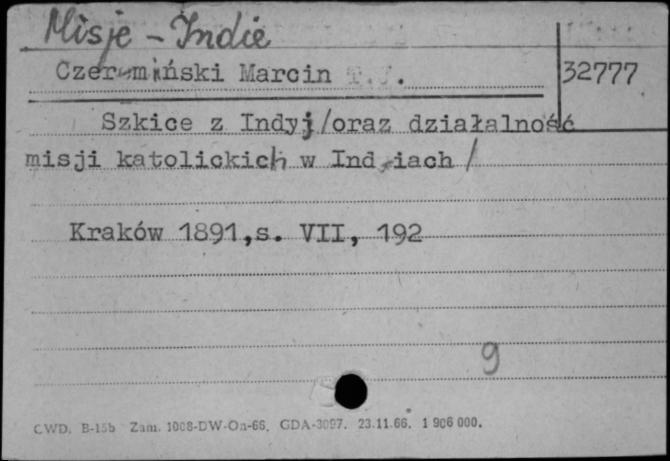 Misje - Indie
Czermiński Marcin T.J. 32777
Szkice z Indyj /oraz działalność
misji katolickich w Indiach /
Kraków 1891, s. VII, 192
9
CWD. B-15b Zam. 1008-DW-On-66. GDA-3097. 23.11.66. 1 906 000.